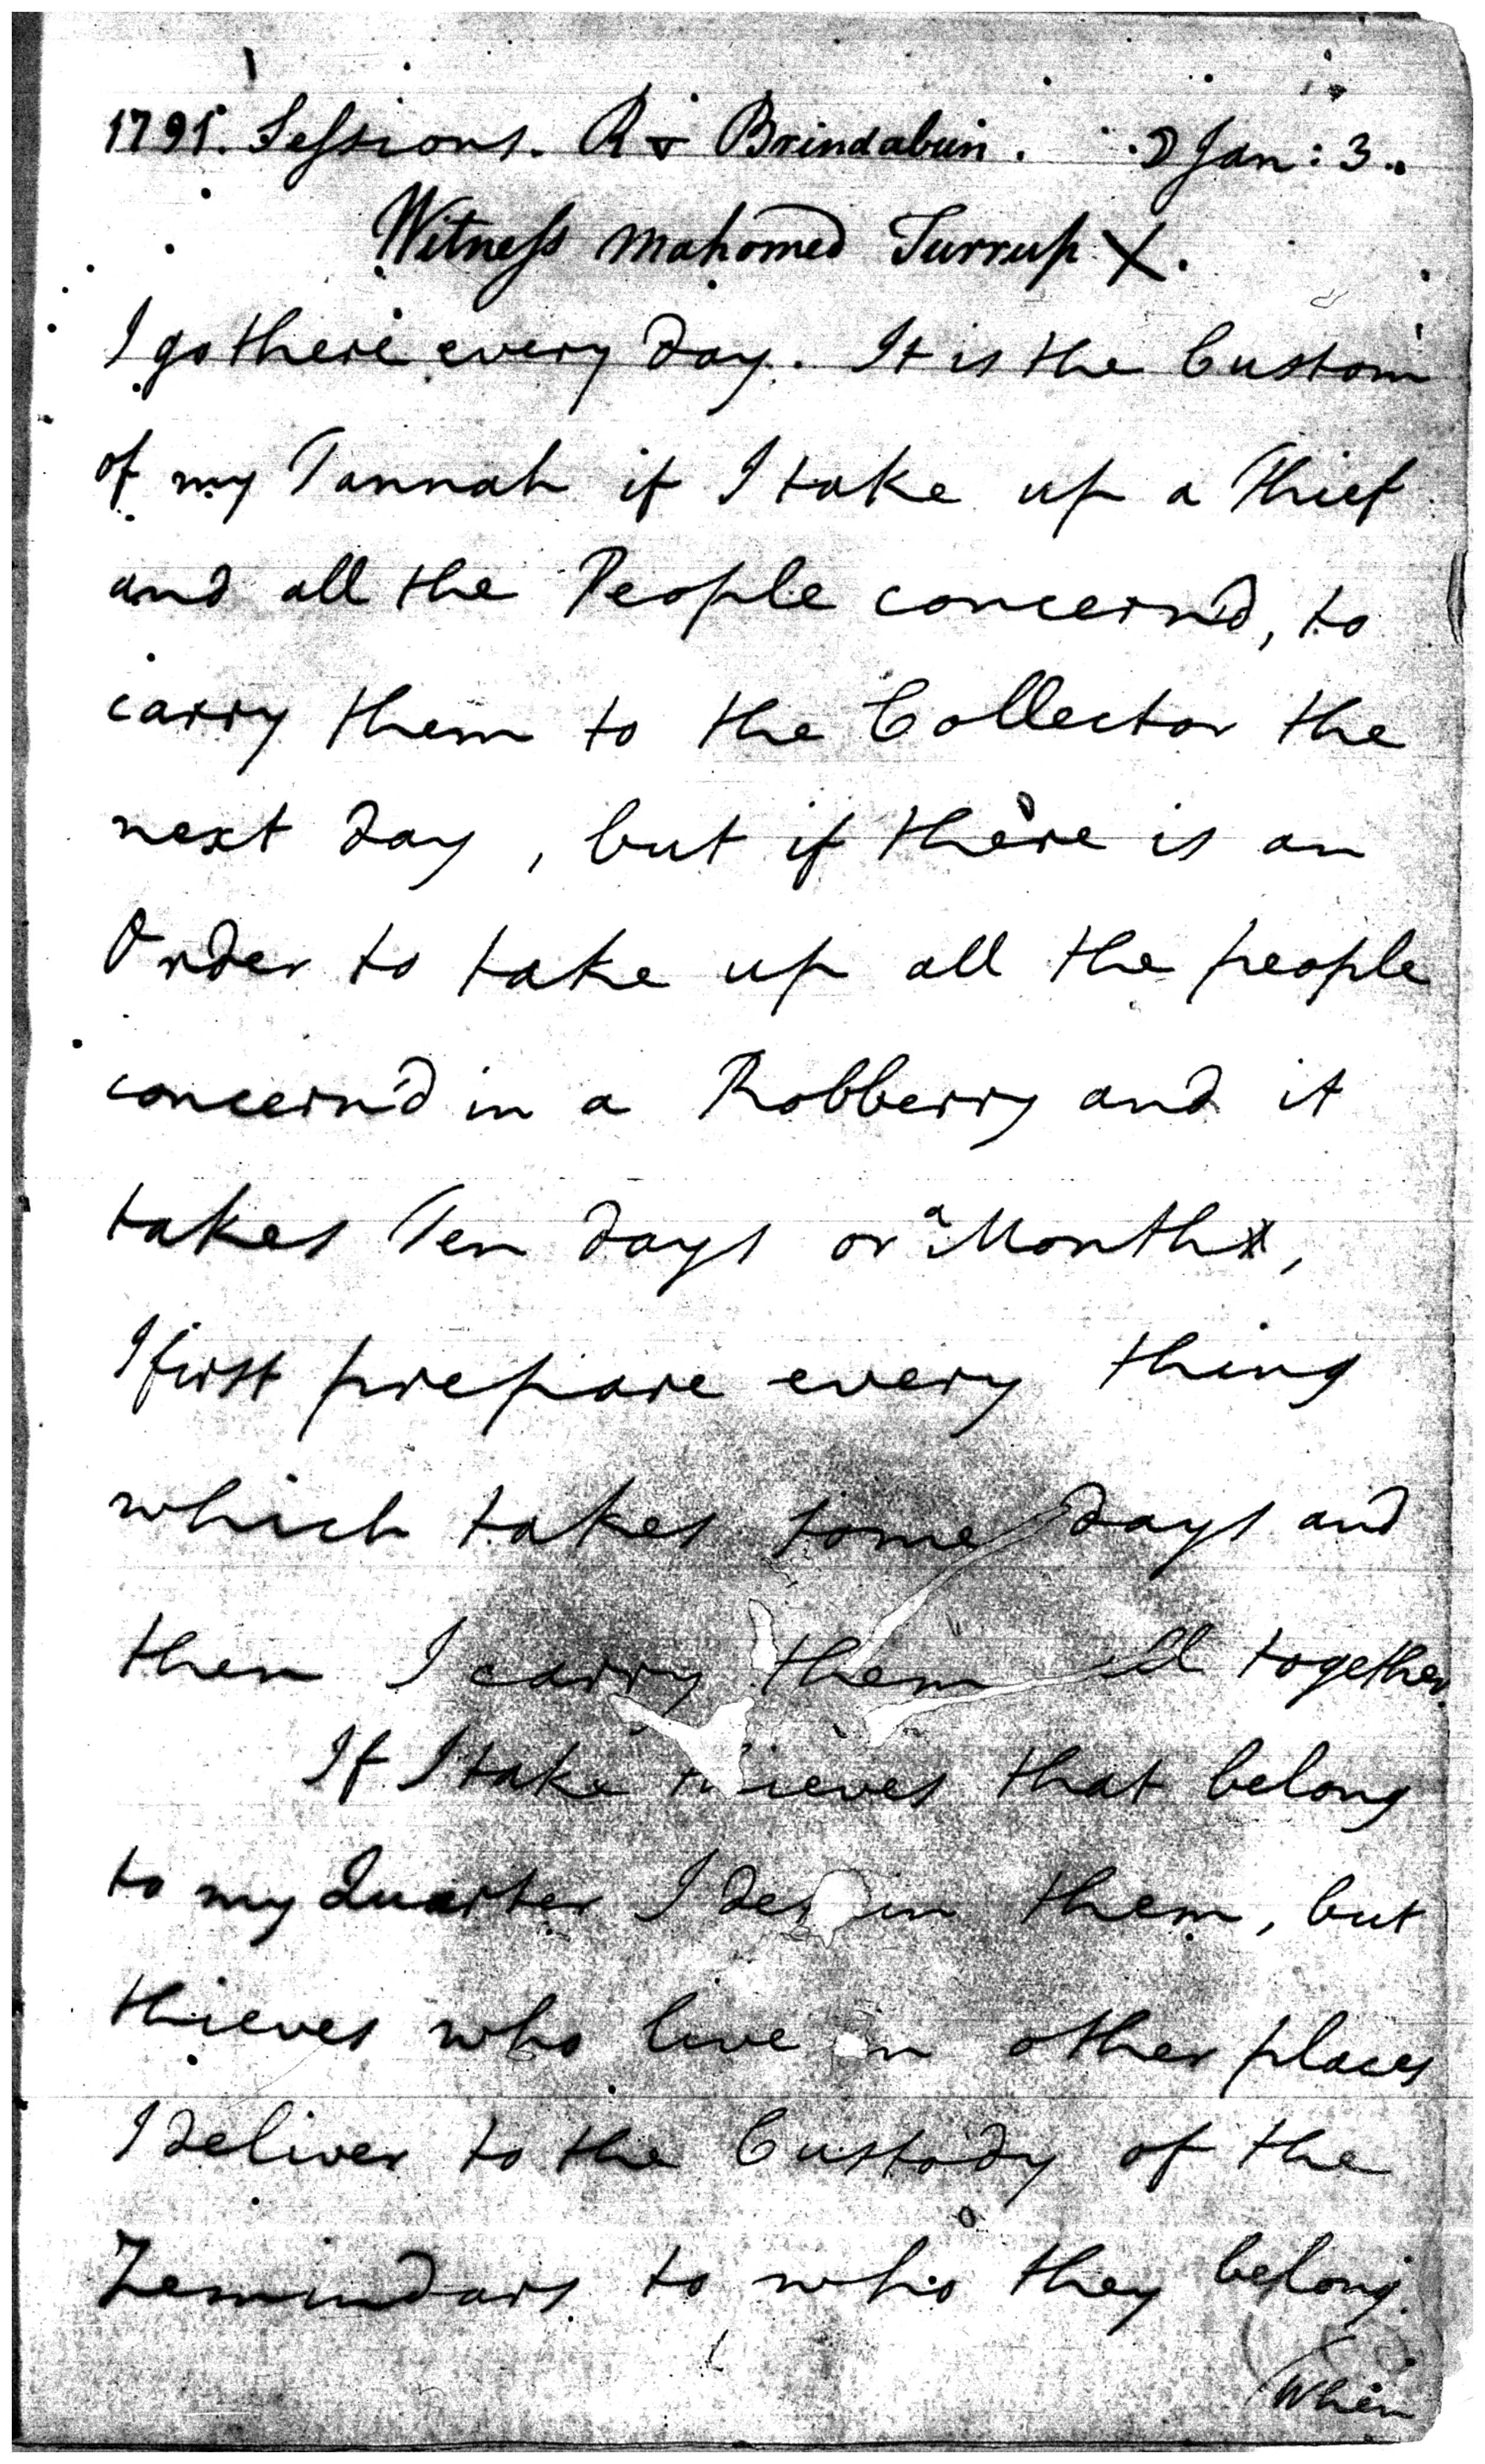 1791. Sessions. R v Brindabun. Jan: 3.
Witness Mahomed Turrup X.
I go there every day. It is the Custom
of my Tannah if I take up a Thief
and all the People concern'd, to
carry them to the Collector the
next day, but if there is an
Order to take up all the people
concern'd in a Robberry and it
takes Ten days or a Month,
I first prepare every thing
which takes some days and
then I carry them all together.
If I take thieves that belong
to my Quarter I detain them, but
thieves who live in other places
I deliver to the Custody of the
Zemindars to who they belong.
When